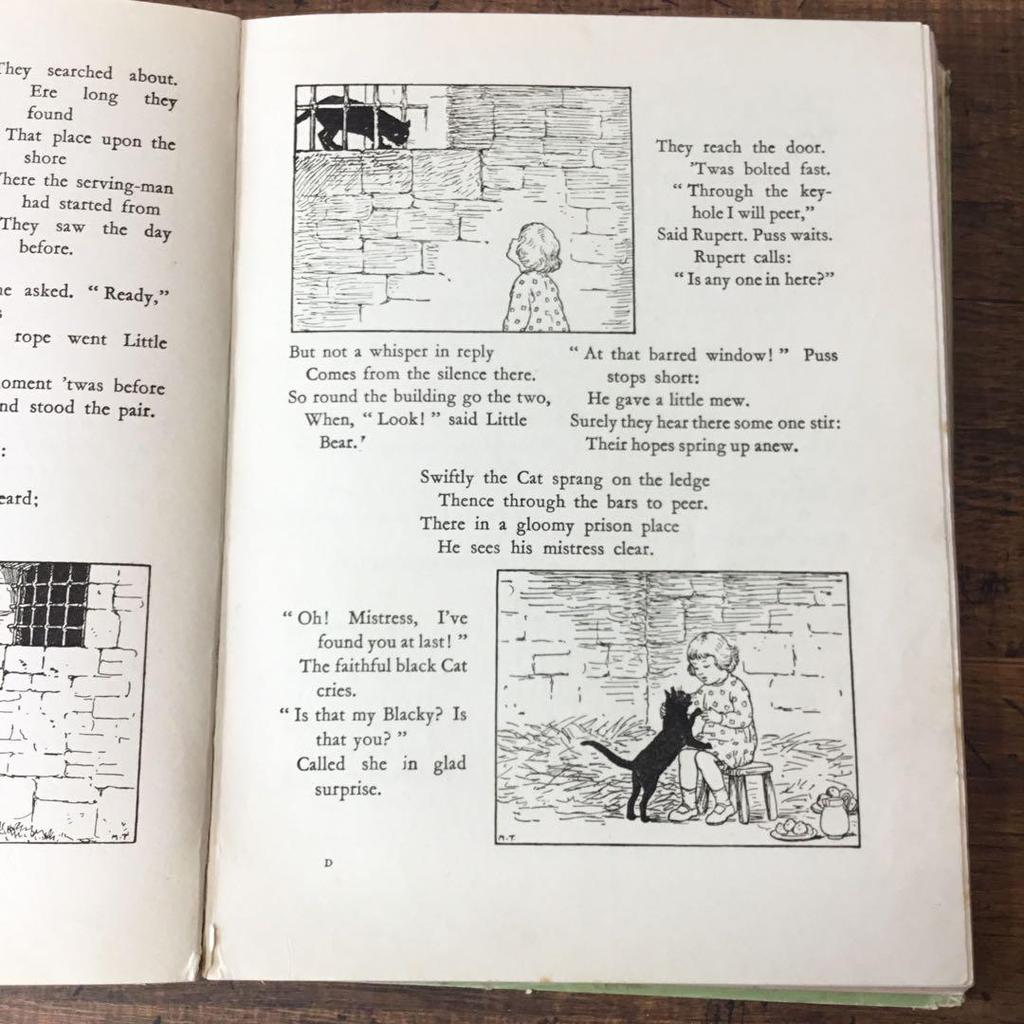 They searched about.
Ere long they
found
That place upon the
shore
Where the serving-man
had started from
They saw the day
before.
asked. “Ready,”
rope went Little
'twas before
stood the pair.
They reach the door.
'Twas bolted fast.
“Through the key-
hole I will peer,”
Said Rupert. Puss waits.
Rupert calls:
“Is any one in here?”
But not a whisper in reply
Comes from the silence there.
So round the building go the two,
When, “Look!” said Little
Bear.'
“At that barred window!” Puss
stops short:
He gave a little mew.
Surely they hear there some one stir:
Their hopes spring up anew.
Swiftly the Cat sprang on the ledge
Thence through the bars to peer.
There in a gloomy prison place
He sees his mistress clear.
“Oh! Mistress, I've
found you at last!”
The faithful black Cat
cries.
“Is that my Blacky? Is
that you?”
Called she in glad
surprise.
M.T
M.T.
D